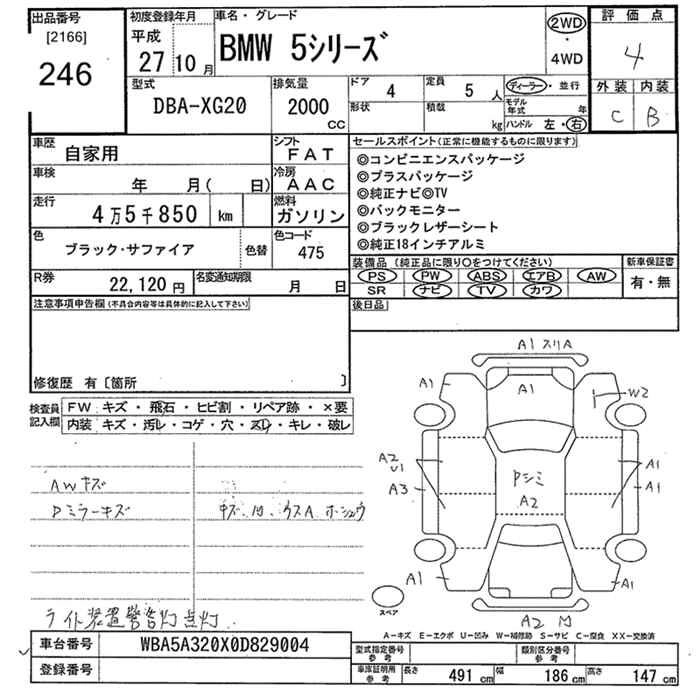 出品番号 初度登録年月 車名・グレード
[2166] 平成 27 10月 BMW 5シリーズ 2WD・4WD
246
評価点
4
外装 内装
C B
型式 排気量 ドア 定員
DBA-XG20 2000 CC 4 5人
形状 積載 kg
ディーラー・並行
モデル年式 年
ハンドル 左・右
車歴 自家用 シフト FAT
車検 年 月( 日) 冷房 AAC
走行 4万5千850 km 燃料 ガソリン
色 ブラック・サファイア 色替 色コード 475
R券 22,120円 名変通知期限 月 日
セールスポイント(正常に機能するものに限ります)
◎コンビニエンスパッケージ
◎プラスパッケージ
◎純正ナビ◎TV
◎バックモニター
◎ブラックレザーシート
◎純正18インチアルミ
装備品(純正品に限り○をつけてください) 新車保証書
PS PW ABS エアB AW 有・無
SR ナビ TV カワ
後日品
注意事項申告欄(不具合内容等は具体的に記入して下さい)
修復歴 有〔箇所 〕
検査員記入欄
FW キズ・飛石・ヒビ割・リペア跡・×要
内装 キズ・汚レ・コゲ・穴・スレ・キレ・破レ
AWキズ
Pミラーキズ
ライト装置警告灯点灯
A1 スリA
A1
A1
W2
A2
U1
A3
Pシミ
A2
A1
A1
A1
A1
A2
スペア
A-キズ E-エクボ U-凹み W-補修跡 S-サビ C-腐食 XX-交換済
車台番号 WBA5A320X0D829004
登録番号
型式指定番号参考 類別区分番号参考
車庫証明用参考 長さ 491cm 幅 186cm 高さ 147cm